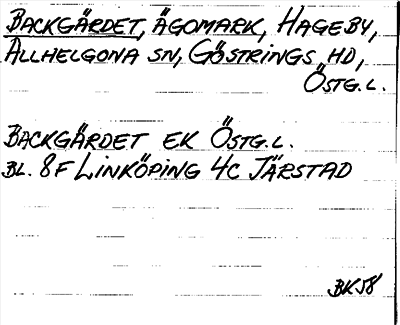 BACKGÄRDET, ÄGOMARK, HAGEBY,
ALLHELGONA SN, GÖSTRINGS HD,
ÖSTG.L.
BACKGÄRDET EK ÖSTG.L.
BL. 8F LINKÖPING 4C JÄRSTAD
BK58